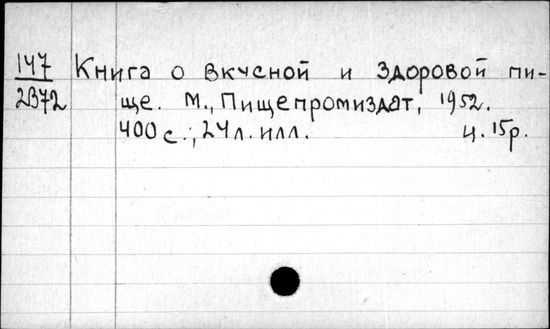 147 Книга о вкусной и здоровой пи-
2В72 ще. М., Пищепромиздат, 1952.
400 с.; 24 л. илл. ц. 15 р.